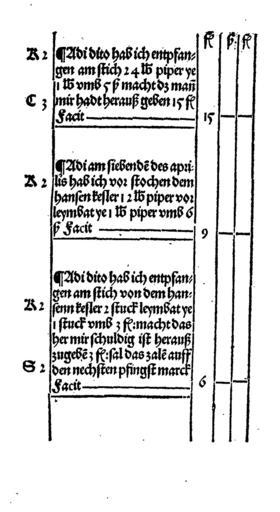 fl ß hl
K 2 ¶Adi dito hab ich entpfan-
gen am stich 24 lb piper ye
1 lb vmb 5 ß macht dz man
C 3 mir hadt herauß geben 15 fl
Facit 15
¶Adi am siebendē des apri-
K 2 lis hab ich vor stochen dem
hansen kesler 12 lb piper vor
leymbat ye 1 lb piper vmb 6
ß Facit 9
¶Adi dito hab ich entpfan-
gen am stich von dem han-
K 2 senn kesler 2 stuck leymbat ye
1 stuck vmb 3 fl: macht das
her mir schuldig ist herauß
zugebē 3 fl: sal das zalē auff
S 2 den nechsten pfingst marck
Facit 6